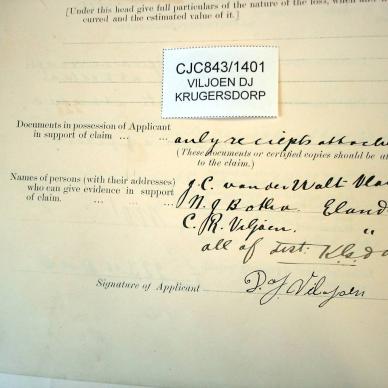 [Under this head give full particulars of the nature of the loss, when
curred and the estimated value of it.]
CJC843/1401
VILJOEN DJ
KRUGERSDORP
Documents in possession of Applicant
in support of claim ... ... only reciepts
(These documents or certified copies should be
to the claim.)
Names of persons (with their addresses)
who can give evidence in support
of claim. ... ...
J.C. van der Walt
N.J Botha Eland
C.R. Viljoen. "
all of Dist:
Signature of Applicant D.J. Viljoen